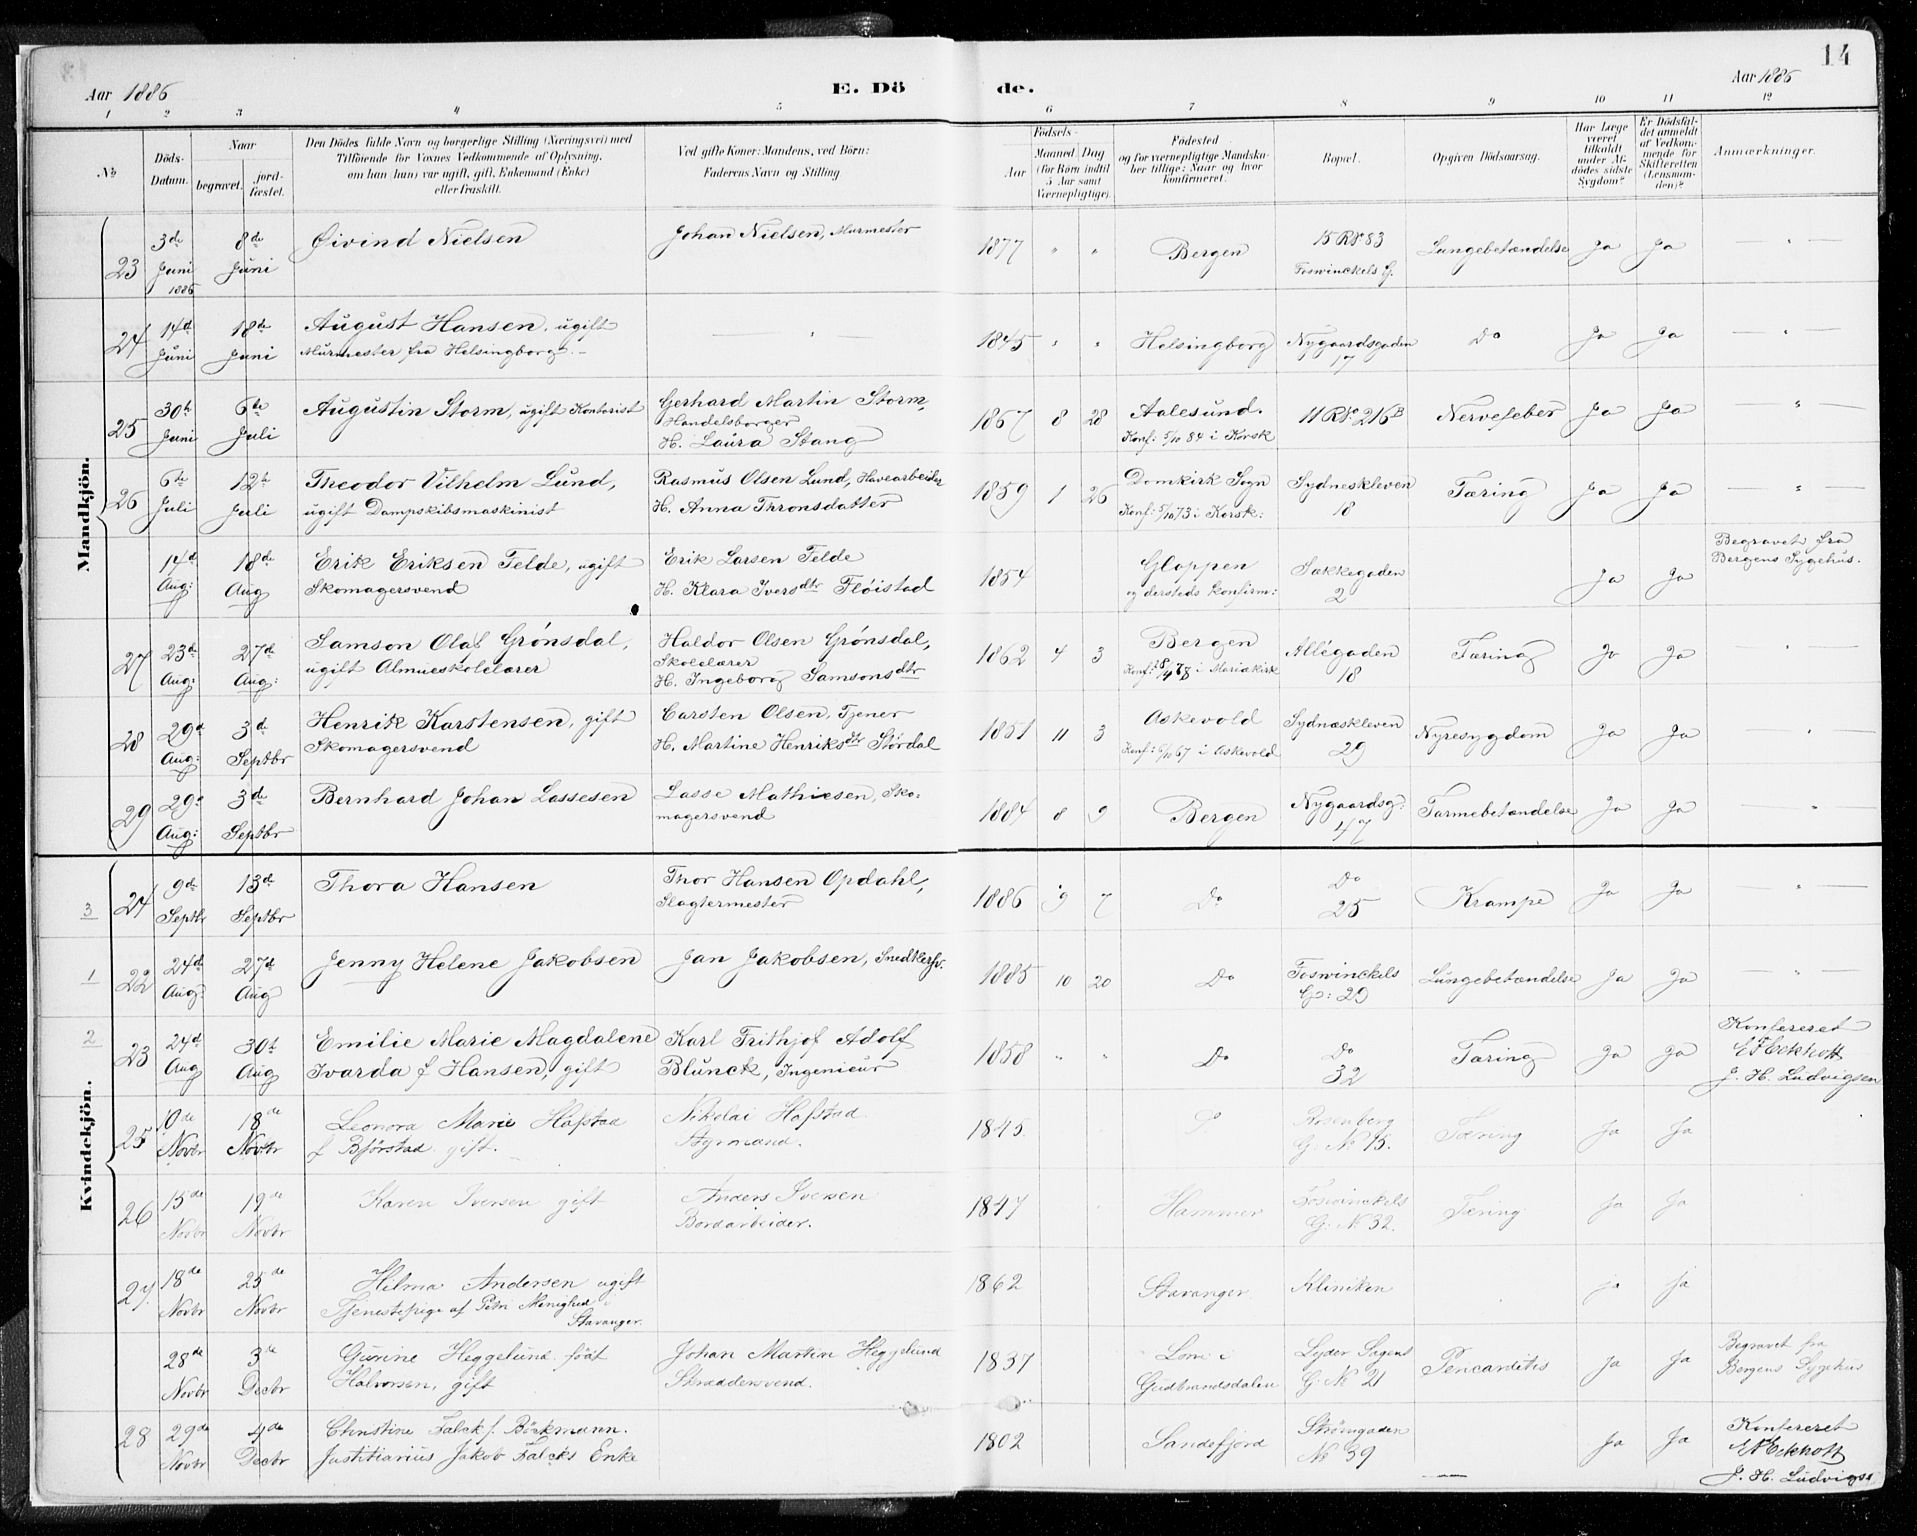 14
Aar 1886
E. Dö de.
Aar 1886
1 2 3 4 5 6 7 8 9 10 11 12
No
Döds-Datum.
Naar
begravet.
jord-fæstet.
Den Dödes fulde Navn og borgerlige Stilling (Næringsvei) med
Tilföiende for Voxnes Vedkommende af Oplysning,
om han (hun) var ugift, gift, Enkemand (Enke)
eller fraskilt.
Ved gifte Koner: Mandens, ved Börn:
Faderens Navn og Stilling.
Födsels-
Aar
Maaned
Dag
(for Börn indtil
5 Aar samt
Værnepligtige).
Födested
og for værnepligtige Mandskaber tillige: Naar og hvor
konfirmeret.
Bopæl.
Opgiven Dödsaarsag.
Har Læge
været
tilkaldt
under Afdödes sidste
Sygdom?
Er Dödsfaldet anmeldt
af Vedkommende for
Skifteretten
(Lensmanden)?
Anmærkninger.
Mandkjön.
23 3de Juni 1886 8de Juni Øivind Nielsen Johan Nielsen, Murmester 1877 " " Bergen 15 R No 83 Foswinckels G. Lungebetændelse Ja Ja — " —
24 14d Juni 18de Juni August Hansen, ugift
Murmester fra Helsingborg. — " 1845 " " Helsingborg Nygaardsgaden 17 Do Ja Ja — " —
25 30te Juni 6te Juli Augustin Storm, ugift Kontorist Gerhard Martin Storm,
Handelsborger
H. Laura Stang 1867 8 28 Aalesund.
Konf: 5/10 84 i Korsk 11 R No 216 B Nervefeber Ja Ja "
26 6te Juli 12te Juli Theodor Vilhelm Lund,
ugift Dampskibsmaskinist Rasmus Olsen Lund, Havearbeider
H. Anna Thronsdatter 1859 1 26 Domkirk Sogn
Konf: 5/10 73 i Korsk: Sydneskleven 18 Tæring Ja Ja "
14d Aug: 18de Aug Erik Eriksen Telde, ugift
Skomagersvend Erik Larsen Telde
H. Klara Iversdtr Fløistad 1854 Gloppen
og dersteds konfirm: Sækkegaden 2 Ja Ja Begravet fra
Bergens Sygehus.
27 23de Aug: 27de Aug: Samson Olaf Grönsdal,
ugift Almueskolelærer Haldor Olsen Grönsdal,
Skolelærer
H. Ingeborg Samsonsdtr 1862 4 3 Bergen
Konf: 28/4 78 i Mariakirk Allégaden 18 Tæring Ja Ja "
28 29d Aug: 3d Septbr Henrik Karstensen, gift
Skomagersvend Carsten Olsen, Tjener
H. Martine Henriksdtr Stördal 1851 11 3 Askevold
Konf: 6/10 67 i Askevold Sydnæskleven 29 Nyresygdom Ja Ja "
29 29d Aug: 3de Septbr Bernhard Johan Lassesen Lasse Mathiesen, Sko-
magersvend 1884 8 9 Bergen Nygaardsg: 47 Tarmebetændelse Ja Ja "
Kvindekjön.
3 24 9de Septbr 13de Septbr Thora Hansen Thor Hansen Opdahl,
Slagtermester 1886 9 7 Do Do 25 Krampe Ja Ja " —
1 22 24de Aug: 27d Aug Jenny Helene Jakobsen Jan Jakobsen, Snedkersv. 1885 10 20 Do Foswinckels G: 29 Lungebetændelse Ja Ja "
2 23 24d Aug 30t Aug Emilie Marie Magdalene
Ivarda f Hansen, gift Karl Frithjof Adolf
Blunck, Ingenieur 1858 " " Do Do 32 Tæring Ja Ja Konfereret
E F Eckhoff
J. H. Ludvigsen
25 10de Novbr 18de Novbr Leonora Marie Hofstad
f Björstad. gift. Nikolai Hofstad
Styrmand. 1845. Rosenberg
G. No 15. Tæring Ja Ja
26 15de Novbr 19de Novbr Karen Iversen gift Anders Iversen
Bordarbeider. 1847 Hammer Foswinckels
G. No 32. Tæring Ja Ja
27 18de Novbr 25de Novbr Hilma Andersen ugift
Tjenestepige af Petri Menighed
Stavanger. 1862 Stavanger Kliniken ja ja
28de Novbr 3de Decbr Gurine Heggelund född
Halvorsen, gift Johan Martin Heggelund
Skræddersvend. 1837 Lom i
Gudbrandsdalen Lyder Sagens
G. No 21 Pericarditis ja ja Begravet fra
Bergens Sygehus
28 29de Novbr 4de Decbr Christine Falck f. Böckmann.
Justitiarius Jakob Falcks Enke 1802 Sandefjord Strömgaden
No 39 Ja Ja Konfereret
E F Eckhoff
J. H. Ludvigse